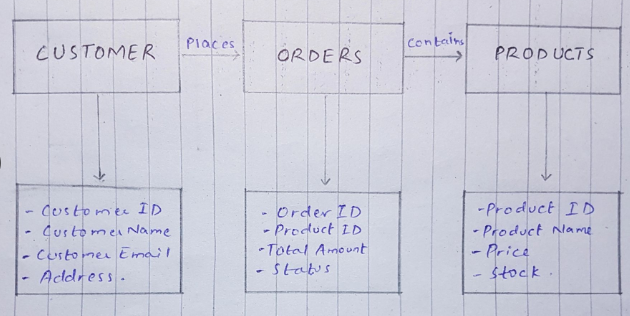 CUSTOMER
Places
ORDERS
Contains
PRODUCTS
- Customer ID
- Customer Name
- Customer Email
- Address.
- Order ID
- Product ID
- Total Amount
- Status
- Product ID
- Product Name
- Price
- Stock.